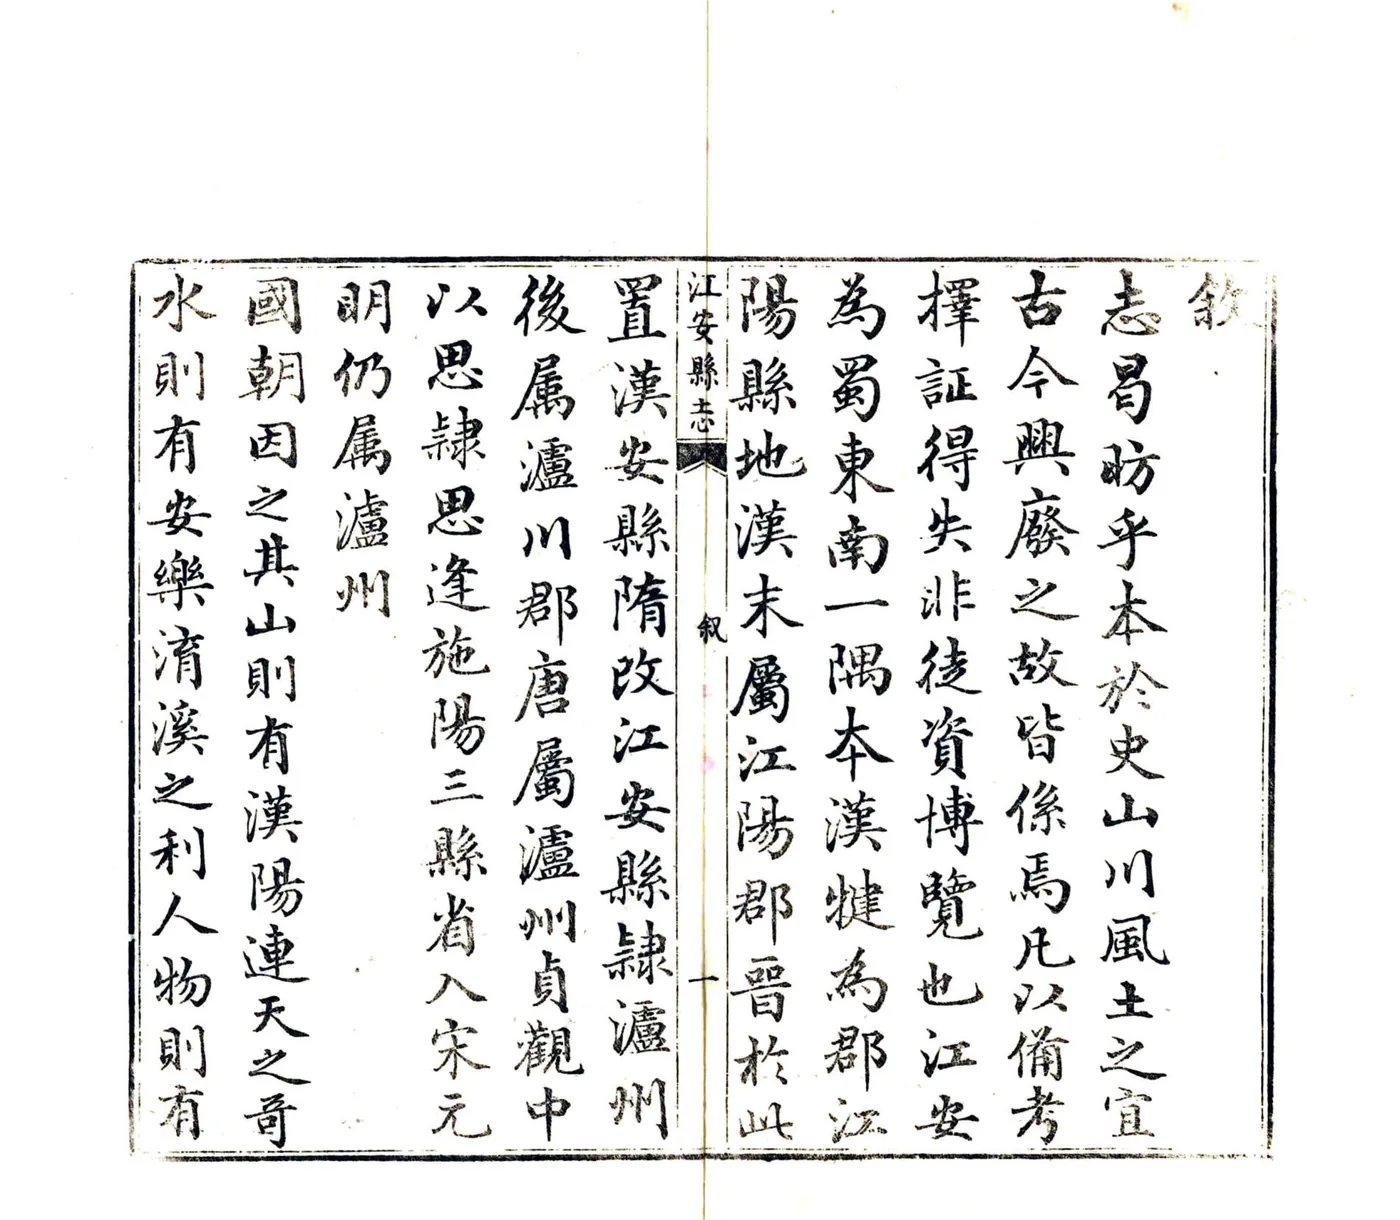 敘
志曷昉乎本於史山川風土之宜
古今興廢之故皆係焉凡以備考
擇証得失非徒資博覽也江安
為蜀東南一隅本漢犍為郡江
陽縣地漢末屬江陽郡晉於此
江安縣志
叙
一
置漢安縣隋改江安縣隷瀘州
後属瀘川郡唐屬瀘州貞觀中
以思隷思逢施陽三縣省入宋元
明仍属瀘州
國朝因之其山則有漢陽連天之奇
水則有安樂淯溪之利人物則有